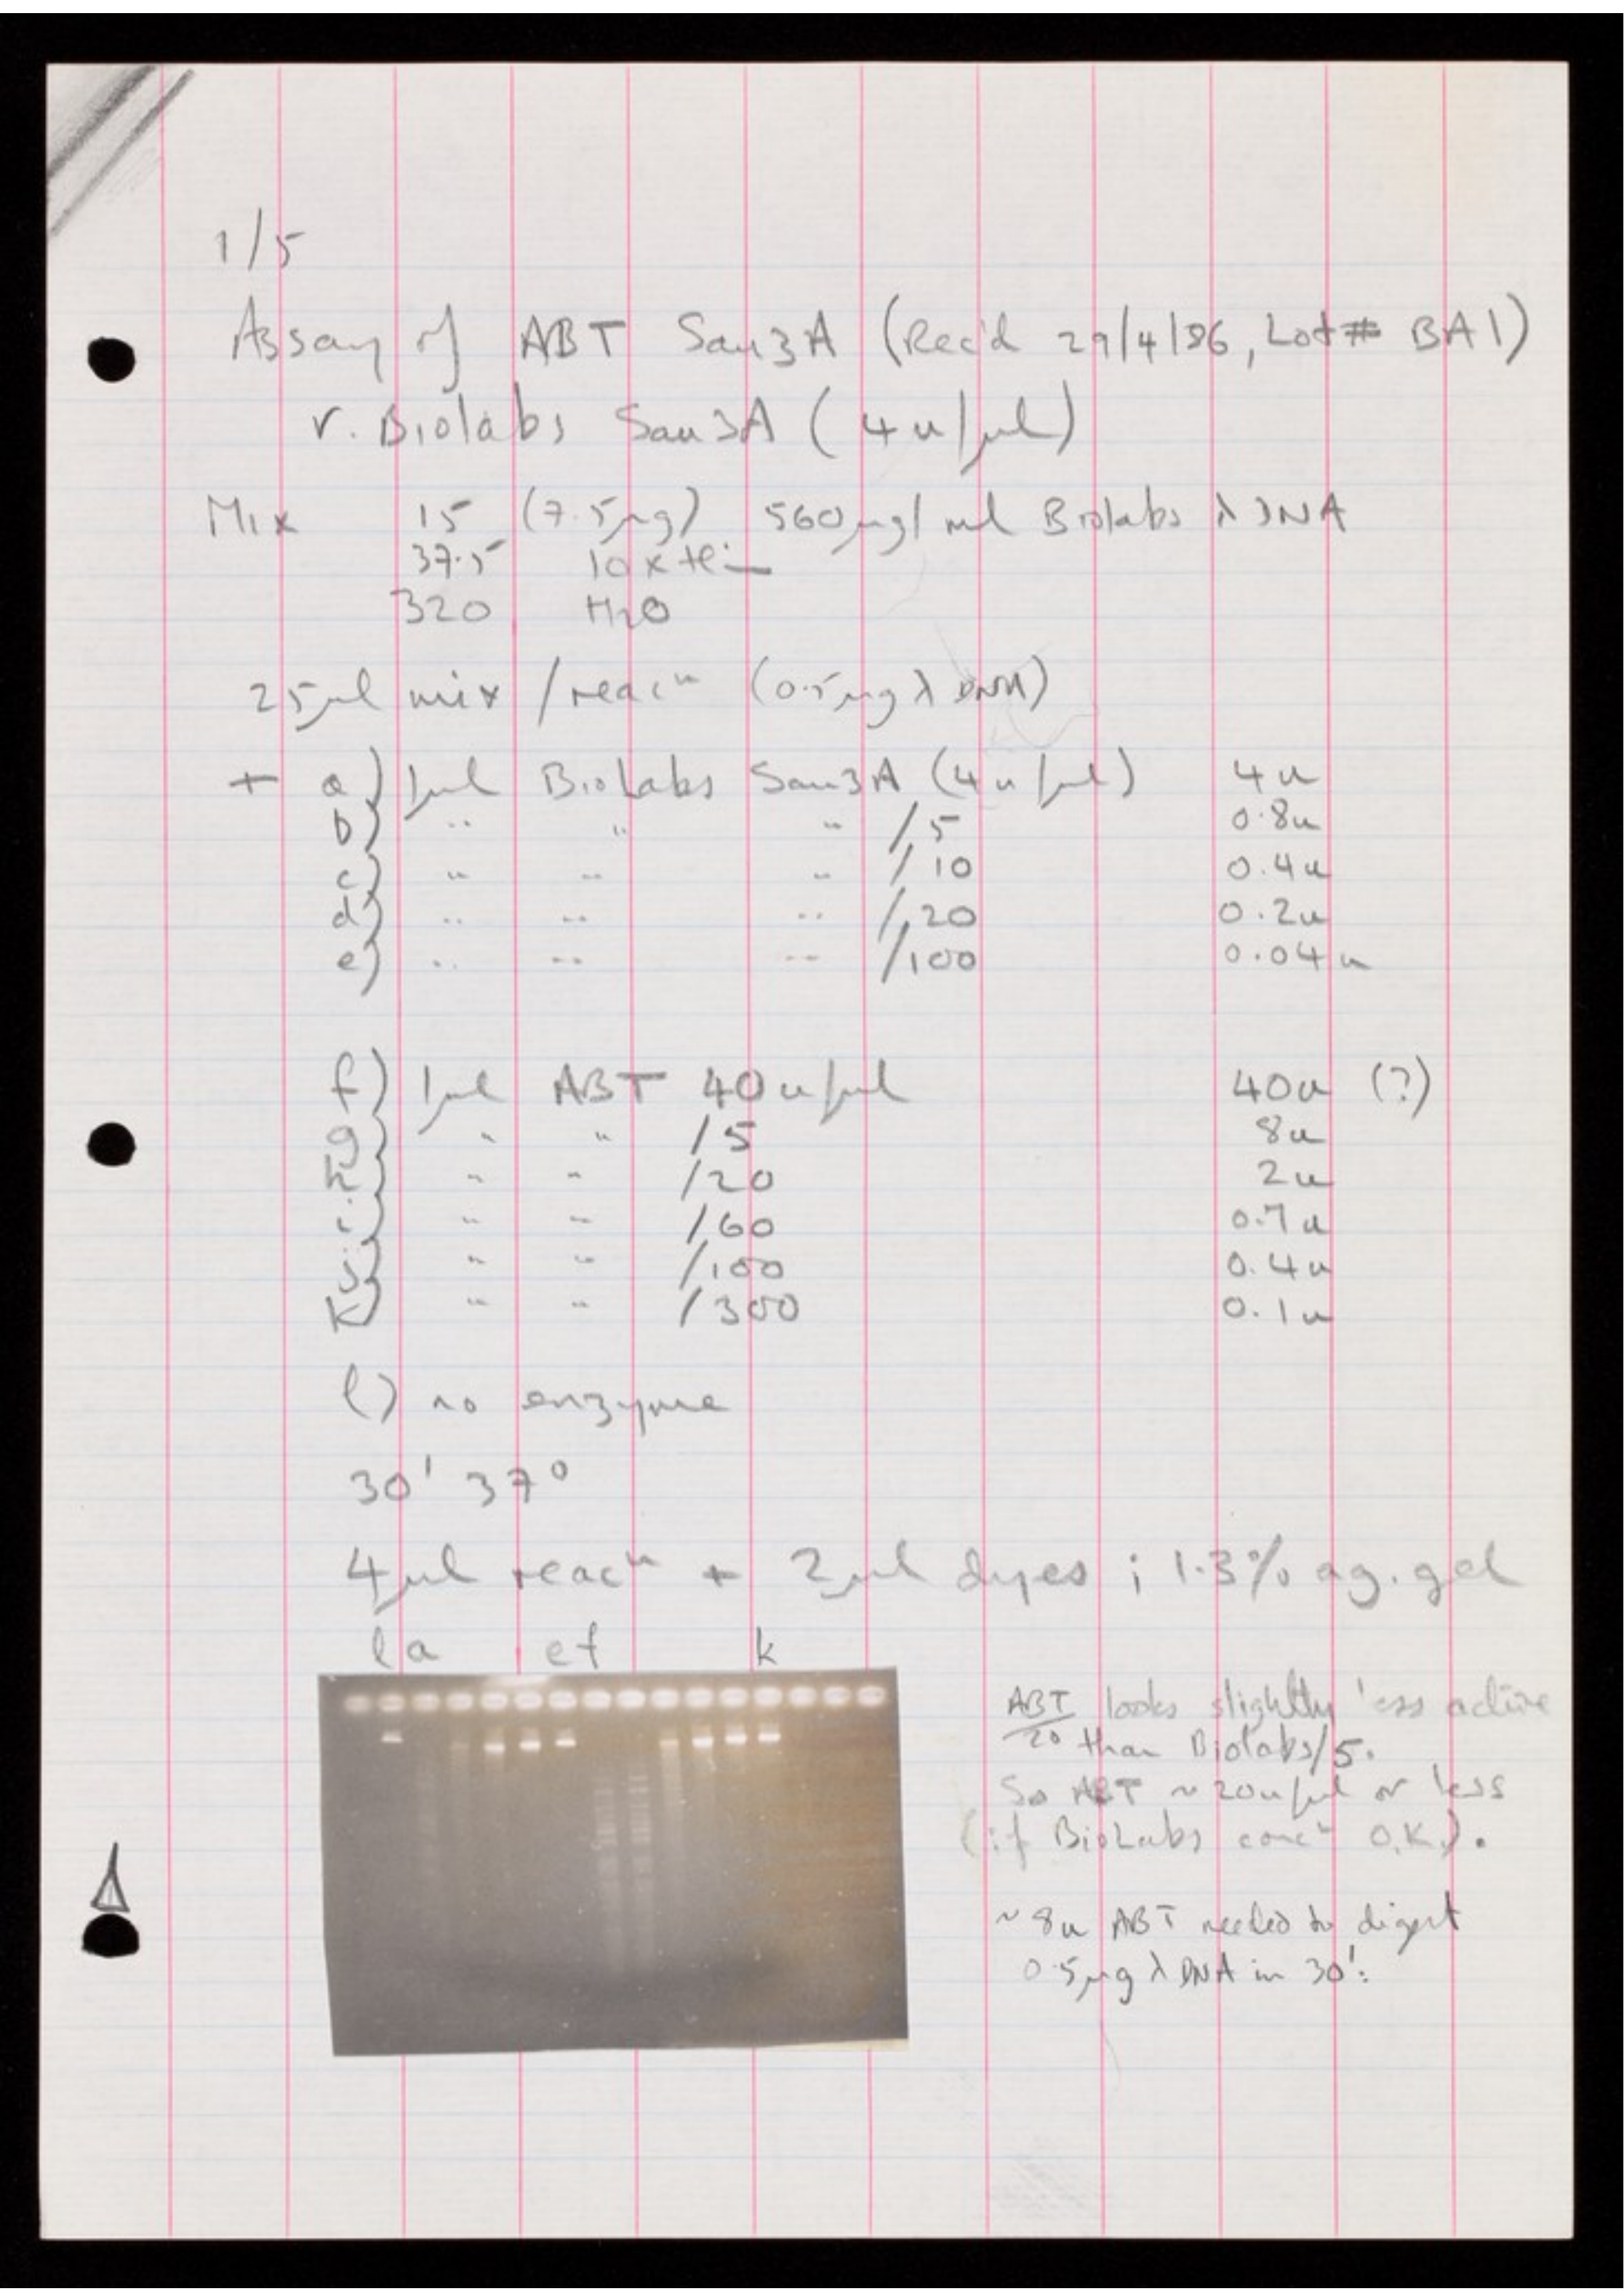 1/5
Assay of ABT Sau3A (Rec'd 29/4/86, Lot # BA1)
v. Biolabs Sau3A (4u/µl)
Mix 15 (7.5µg) 560µg/ml Biolabs λ DNA
37.5 10x
320 H2O
25µl mix/reacⁿ (0.5µg λ DNA)
+ a) 1µl BioLabs Sau3A (4u/µl) 4u
b) " " " /5 0.8u
c) " " " /10 0.4u
d) " " " /20 0.2u
e) " " " /100 0.04u
f) 1µl ABT 40u/µl 40u (?)
g) " " /5 8u
h) " " /20 2u
i) " " /60 0.7u
j) " " /100 0.4u
k) " " /300 0.1u
l) no enzyme
30' 37°
4µl reacⁿ + 2µl dyes; 1.3% ag. gel
l a e f k
ABT/20 looks slightly less active
than Biolabs/5.
So ABT ~ 20u/µl or less
(if BioLabs concⁿ O.K.).
~8u ABT needed to digest
0.5µg λ DNA in 30'.